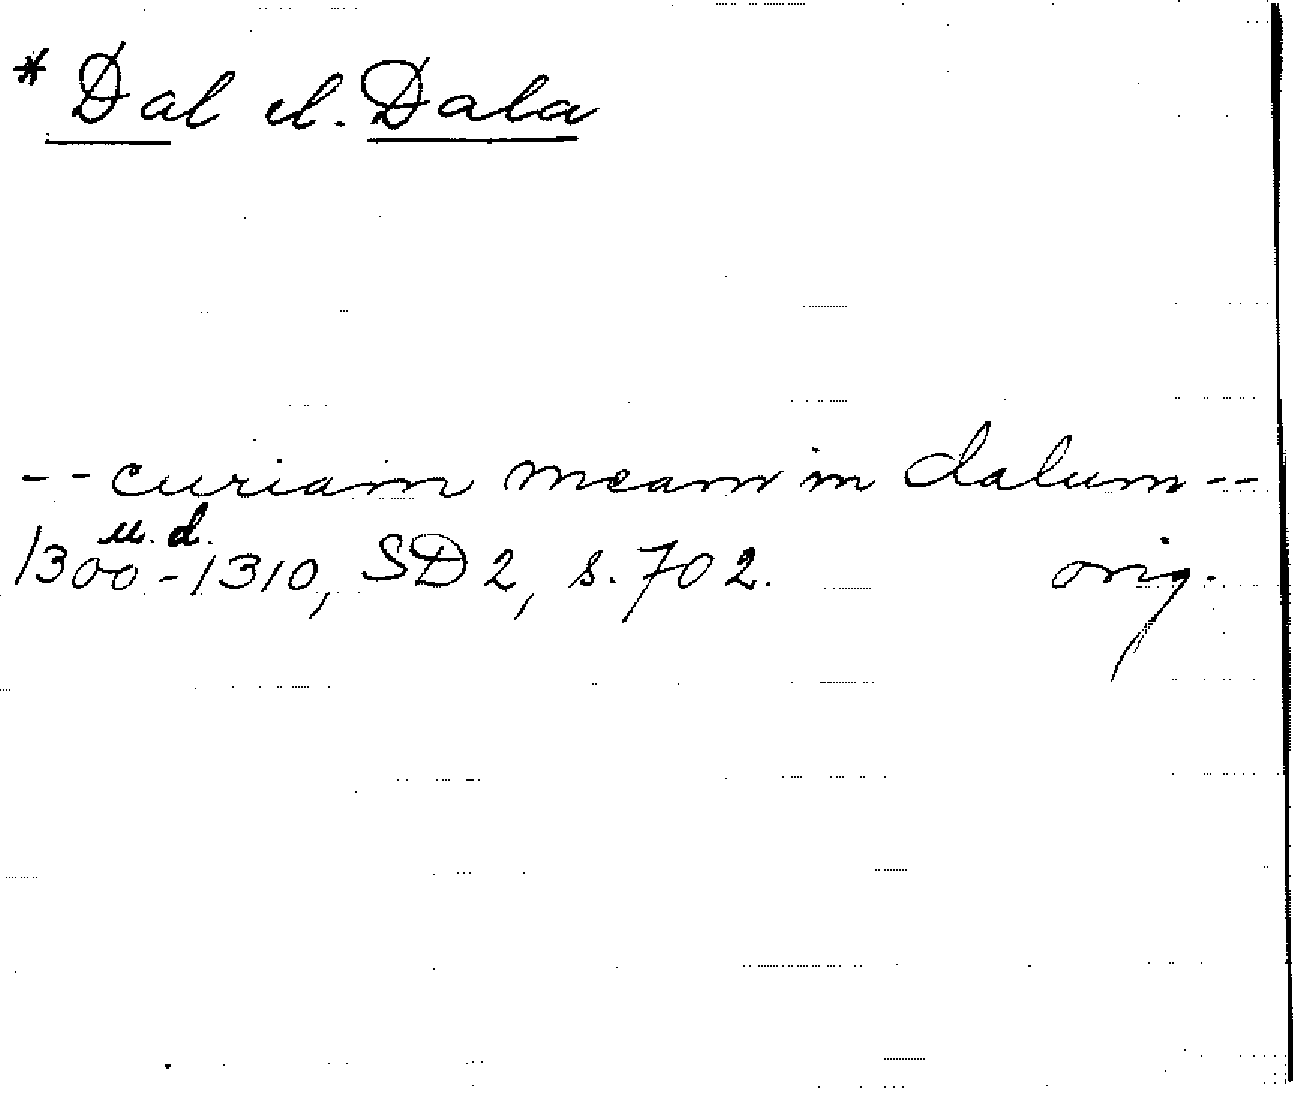 * Dal el. Dala
-- curiam meam in dalum --
u. d.
1300-1310, SD 2, s. 702. orig.